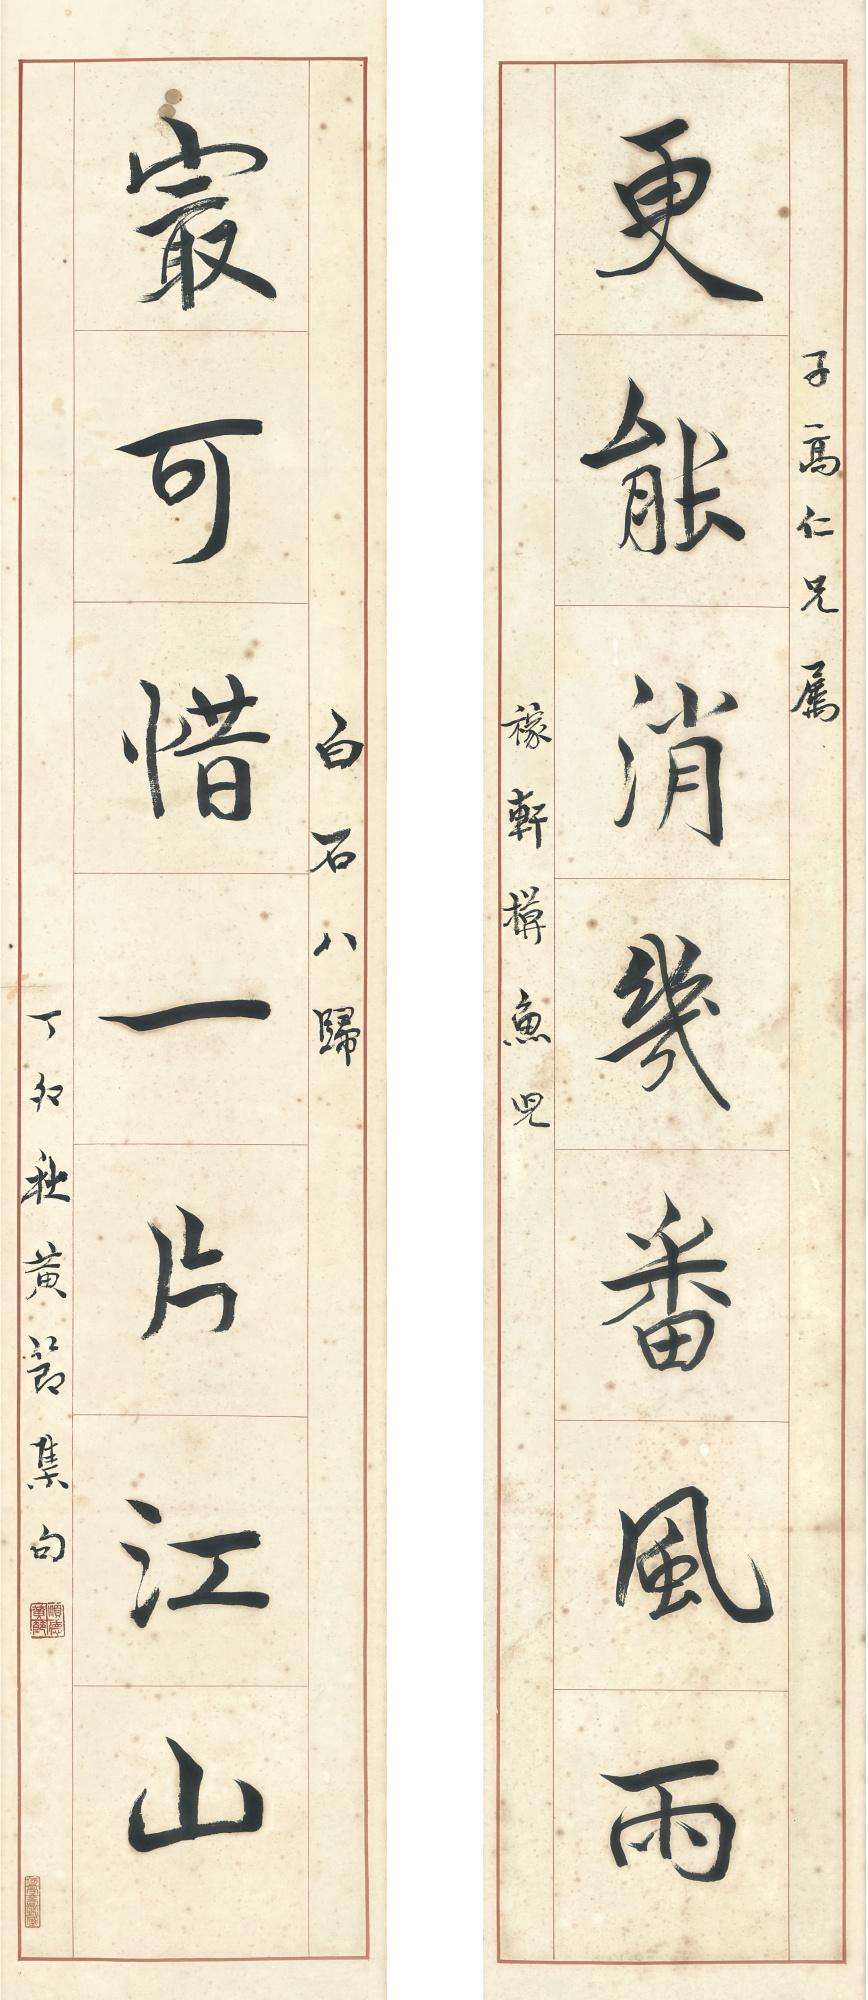 子高仁兄屬
更能消幾番風雨
稼軒摸魚兒
白石八歸
寂可惜一片江山
丁卯秋黃節集句
順德黃節